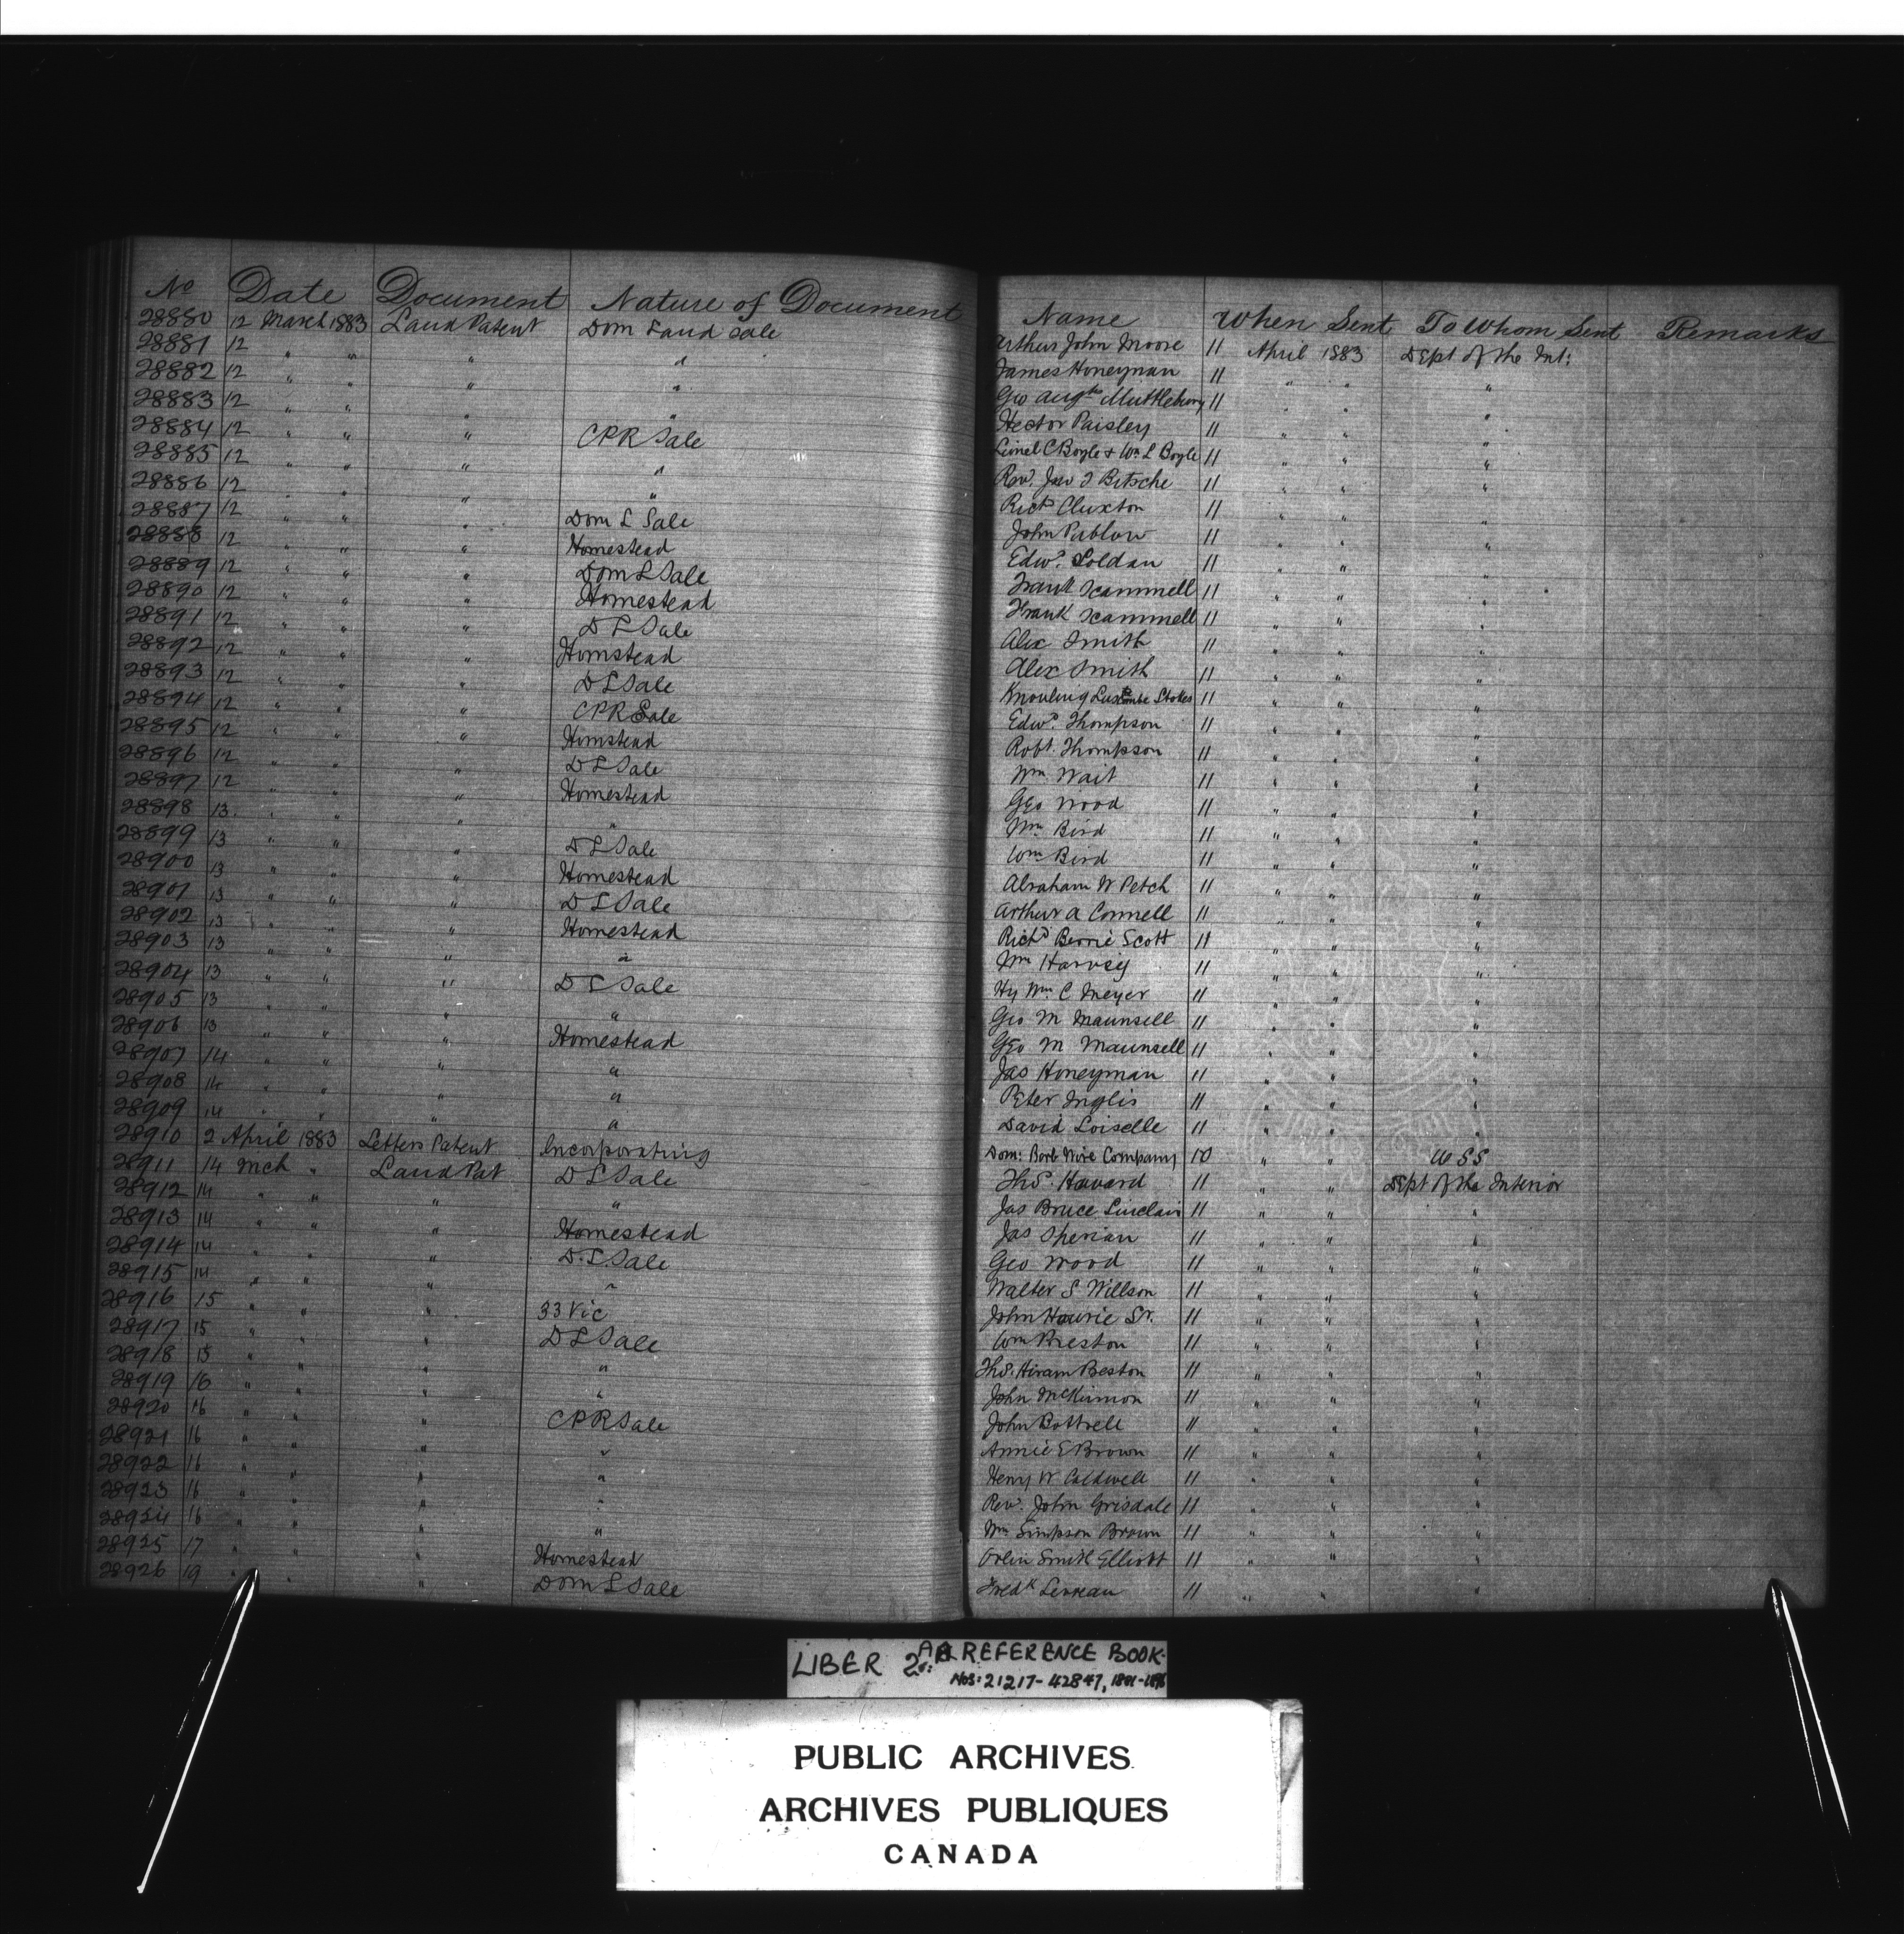 No Date Document Nature of Document
28880 12 March 1883 Land Patent Dom Land Sale
28881 12 " " " "
28882 12 " " " "
28883 12 " " " "
28884 12 " " " CPR Sale
28885 12 " " " "
28886 12 " " " "
28887 12 " " " Dom L Sale
28888 12 " " " Homestead
28889 12 " " " Dom L Sale
28890 12 " " " Homestead
28891 12 " " " D L Sale
28892 12 " " " Homstead
28893 12 " " " D L Sale
28894 12 " " " CPR Sale
28895 12 " " " Homstead
28896 12 " " " D L Sale
28897 12 " " " Homestead
28898 13 " " " "
28899 13 " " " D L Sale
28900 13 " " " Homestead
28901 13 " " " D L Sale
28902 13 " " " Homestead
28903 13 " " " "
28904 13 " " " D L Sale
28905 13 " " " "
28906 13 " " " Homestead
28907 14 " " " "
28908 14 " " " "
28909 14 " " " "
28910 2 April 1883 Letters Patent Incorporating
28911 14 Mch " Land Pat D L Sale
28912 14 " " " "
28913 14 " " " Homestead
28914 14 " " " D. L Sale
28915 14 " " " "
28916 15 " " " 33 Vic
28917 15 " " " D L Sale
28918 15 " " " "
28919 16 " " " "
28920 16 " " " CPR Sale
28921 16 " " " "
28922 16 " " " "
28923 16 " " " "
28924 16 " " " "
28925 17 " " " Homestead
28926 19 " " " Dom L Sale
Name When Sent To Whom Sent Remarks
Arthur John Moore 11 April 1883 Dept of the Int:
James Honeyman 11 " " "
Geo Augts Muttlebury 11 " " "
Hector Paisley 11 " " "
Lionel C Boyle & Wm L Boyle 11 " " "
Rev. Jno F Betsche 11 " " "
Richd Cluxton 11 " " "
John Publow 11 " " "
Edwd Soldan 11 " " "
Frank Scammell 11 " " "
Frank Scammell 11 " " "
Alex Smith 11 " " "
Alex Smith 11 " " "
Knowling Luscombe Stokes 11 " " "
Edwd Thompson 11 " " "
Robt. Thompson 11 " " "
Wm Wait 11 " " "
Geo Wood 11 " " "
Wm Bird 11 " " "
Wm Bird 11 " " "
Abraham W Petch 11 " " "
Arthur A Connell 11 " " "
Richd Berrie Scott 11 " " "
Wm Harvey 11 " " "
Hy Wm C Meyer 11 " " "
Geo M Maunsell 11 " " "
Geo M Maunsell 11 " " "
Jas Honeyman 11 " " "
Peter Inglis 11 " " "
David Loiselle 11 " " "
Dom: Barb Wire Company 10 " " U S S
Thos. Havard 11 " " Dept of the Interior
Jas Bruce Sinclair 11 " " "
Jas 11 " " "
Geo Wood 11 " " "
Walter S Willson 11 " " "
John Hourie Sr. 11 " " "
Wm Preston 11 " " "
Thos. Hiram Preston 11 " " "
John McKinnon 11 " " "
John Bottrell 11 " " "
Annie E Brown 11 " " "
Henry W Caldwell 11 " " "
Rev. John Grisdale 11 " " "
Wm Simpson Brown 11 " " "
Orlin Smith Elliott 11 " " "
Fredk 11 " " "
LIBER 2A: REFERENCE BOOK.
Nos: 21217-42847,
PUBLIC ARCHIVES
ARCHIVES PUBLIQUES
CANADA